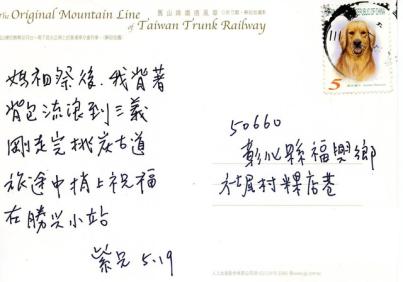 The Original Mountain Line
of Taiwan Trunk Railway
舊山線鐵道風華
媽祖祭後,我背著
背包流浪到三義
剛走完挑炭古道
旅途中捎上祝福
在勝兴小站
紫兄 5.19
5
50660
彰化縣福興鄉
社尾村粿店巷